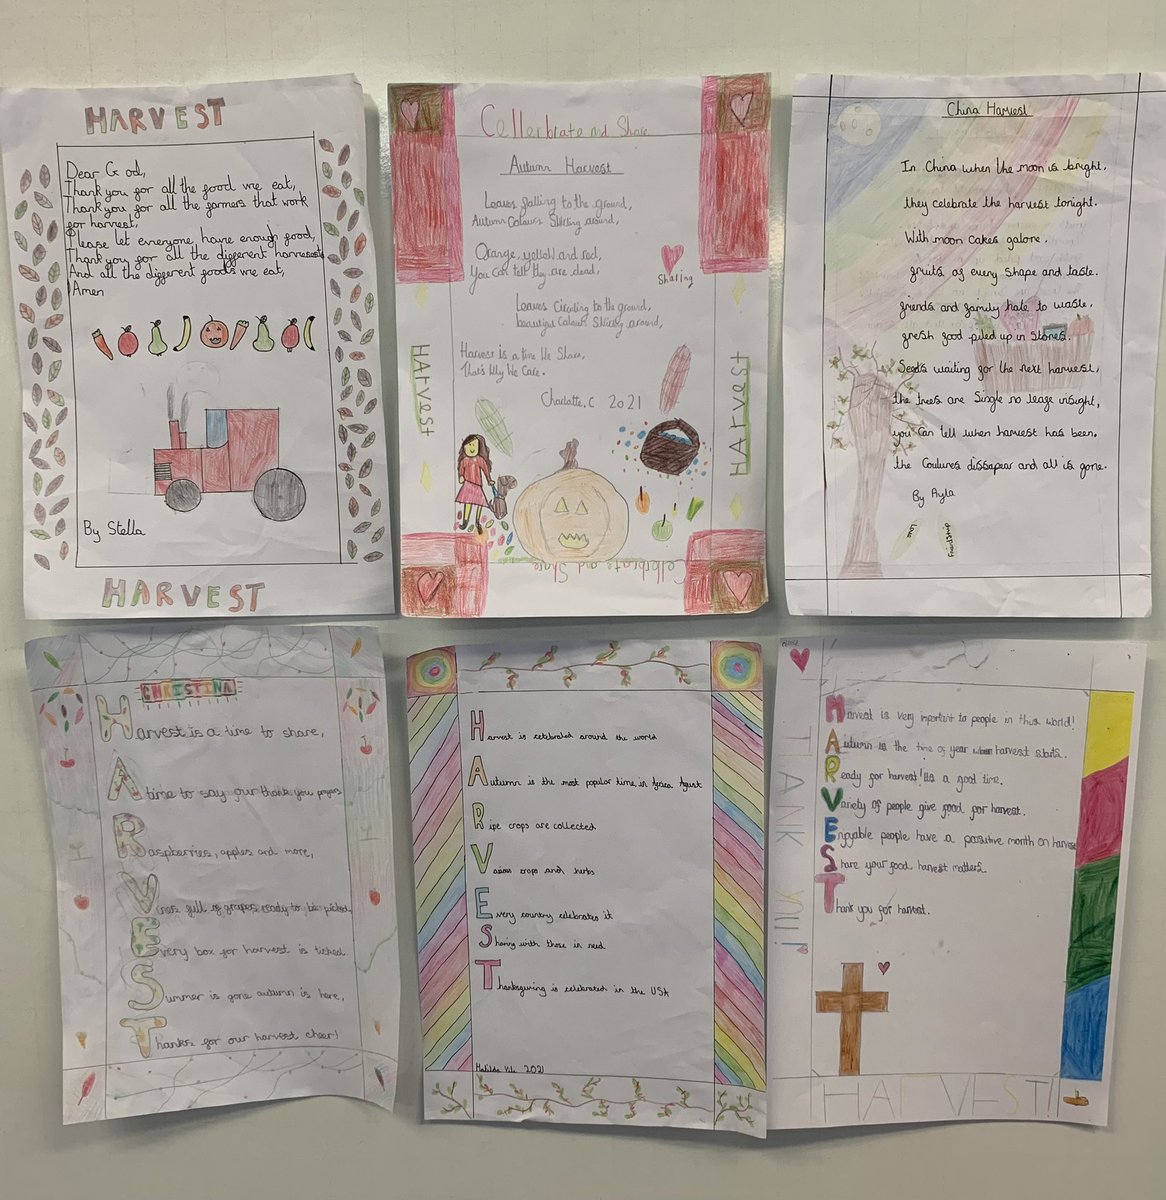 HARVEST
Dear God,
Thank you for all the food we eat,
Thank you for all the farmers that work
for harvest,
Please let everyone have enough food,
Thank you for all the different harvests
And all the different foods we eat,
Amen
By Stella
HARVEST
Cellerbrate and Share
Autumn Harvest
Leaves falling to the ground,
Autumn Colours Sticking around,
Orange, yellow and red,
You can tell they are dead,
Sharing
Leaves Circling to the ground,
beautiful Colours Sticking around,
Harvest is a time We Share,
That's Why We Care.
Charlotte.C 2021
HArvest
HArvest
Cellerbrate and Share
China Harvest
In China when the moon is bright,
they celebrate the harvest tonight.
With moon cakes galore.
fruits of every shape and taste.
friends and family hate to waste,
fresh food piled up in stores.
Seeds waiting for the next harvest,
the trees are Single no leafe insight,
you can tell when harvest has been.
the Coulures dissapear and all is gone.
By Ayla
Love
Friendship
CHRISTINA
Harvest is a time to share,
A time to say our thank you prayers
Raspberries, apples and more,
Vines full of grapes ready to be picked
Every box for harvest is ticked
Summer is gone autumn is here,
Thanks for our harvest cheer!
Harvest is celebrated around the world
Autumn is the most popular time, in
Ripe crops are collected
Various crops and herbs
Every country celebrates it
Sharing with those in need
Thanksgiving is celebrated in the USA
Matilda 2021
Harvest is very important to people in this world!
Autumn is the time of year when harvest starts.
Ready for harvest! Its a good time.
Variety of people give food for harvest.
Enjyable people have a positive month on harvest
Share your food harvest matters.
Thank you for harvest.
THANK YOU!
HARVEST!!